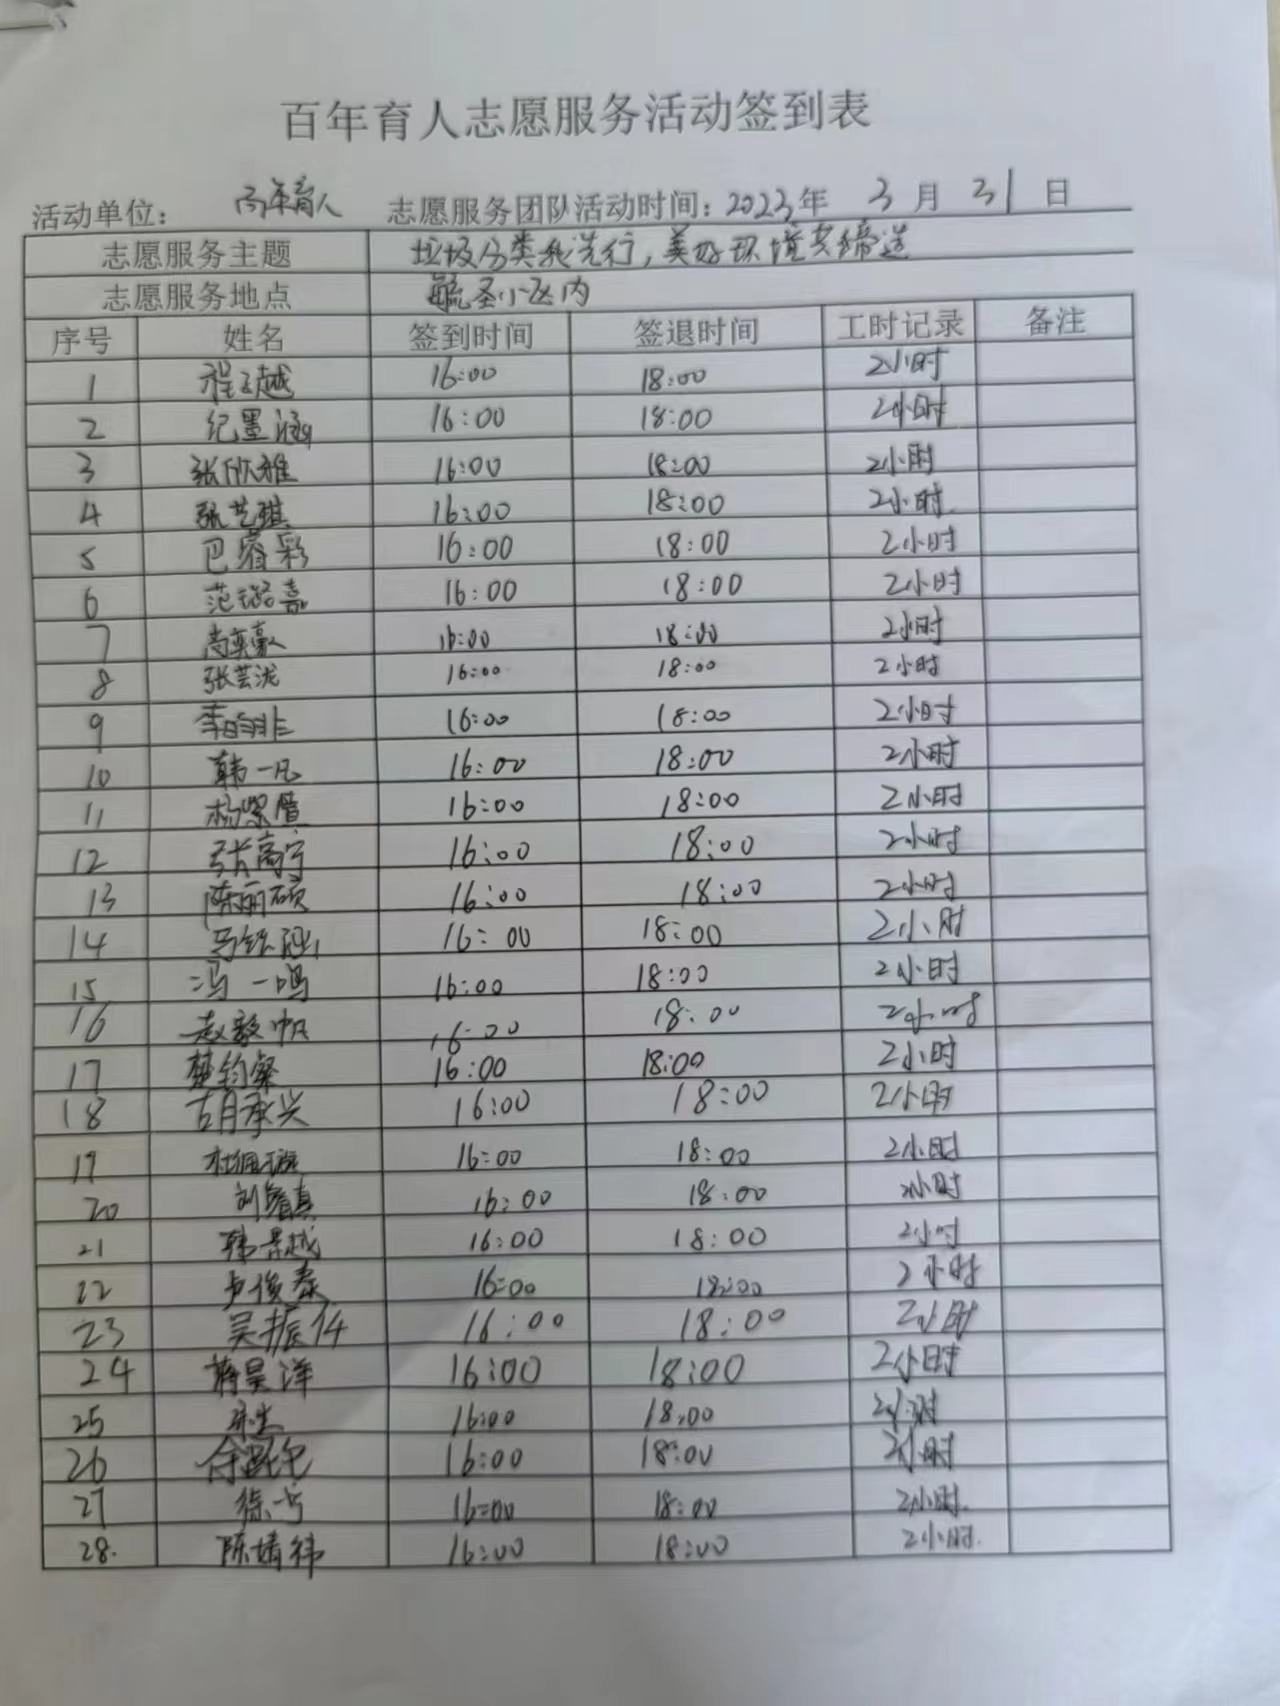 百年育人志愿服务活动签到表
活动单位: 百年育人 志愿服务团队活动时间: 2023年 3月 31日
志愿服务主题 垃圾分类我先行,美好环境共缔造
志愿服务地点 毓圣小区内
序号 姓名 签到时间 签退时间 工时记录 备注
1 程云越 16:00 18:00 2小时
2 纪墨涵 16:00 18:00 2小时
3 张欣雅 16:00 18:00 2小时
4 张艺琪 16:00 18:00 2小时
5 巴睿彩 16:00 18:00 2小时
6 范璐嘉 16:00 18:00 2小时
7 尚奕豪 16:00 18:00 2小时
8 张芸泷 16:00 18:00 2小时
9 李昀非 16:00 18:00 2小时
10 韩一凡 16:00 18:00 2小时
11 杨紫 16:00 18:00 2小时
12 张高宁 16:00 18:00 2小时
13 陈丽硕 16:00 18:00 2小时
14 马 16:00 18:00 2小时
15 冯一鸣 16:00 18:00 2小时
16 赵毅帆 16:00 18:00 2小时
17 楚钧粲 16:00 18:00 2小时
18 胡承兴 16:00 18:00 2小时
19 杜佩璇 16:00 18:00 2小时
20 刘睿真 16:00 18:00 2小时
21 韩景越 16:00 18:00 2小时
22 卢俊泰 16:00 18:00 2小时
23 吴振 16:00 18:00 2小时
24 蒋昊洋 16:00 18:00 2小时
25 16:00 18:00 2小时
26 16:00 18:00 2小时
27 徐一 16:00 18:00 2小时
28. 陈婧祎 16:00 18:00 2小时.